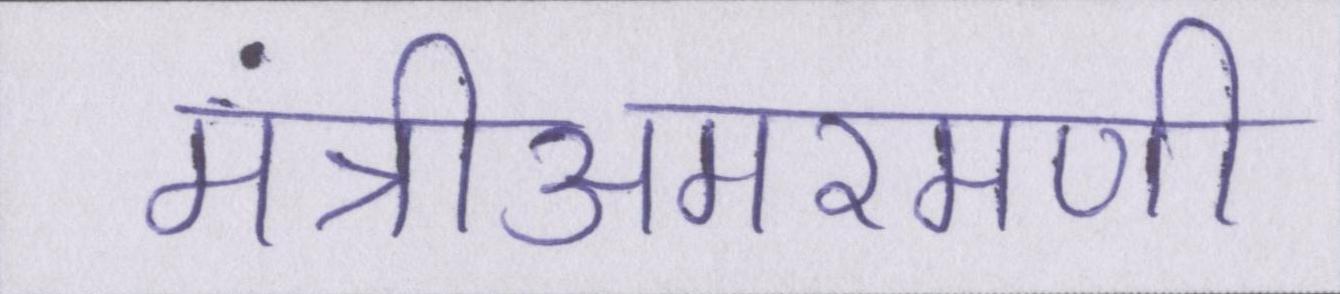 मंत्रीअमरमणी